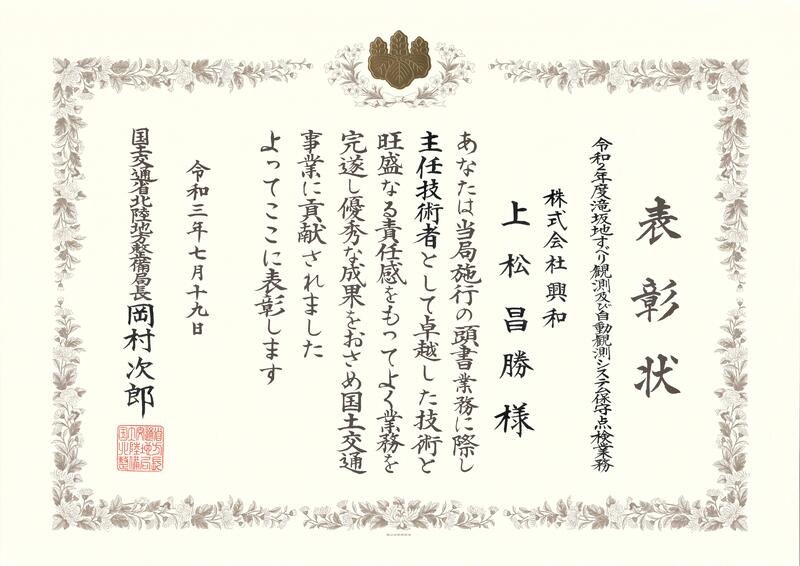 表彰状
令和2年度滝坂地すべり観測及び自動観測システム保守点検業務
株式会社興和
上松昌勝様
あなたは当局施行の頭書業務に際し
主任技術者として卓越した技術と
旺盛なる責任感をもってよく業務を
完遂し優秀な成果をおさめ国土交通
事業に貢献されました
よってここに表彰します
令和三年七月十九日
国土交通省北陸地方整備局長 岡村次郎